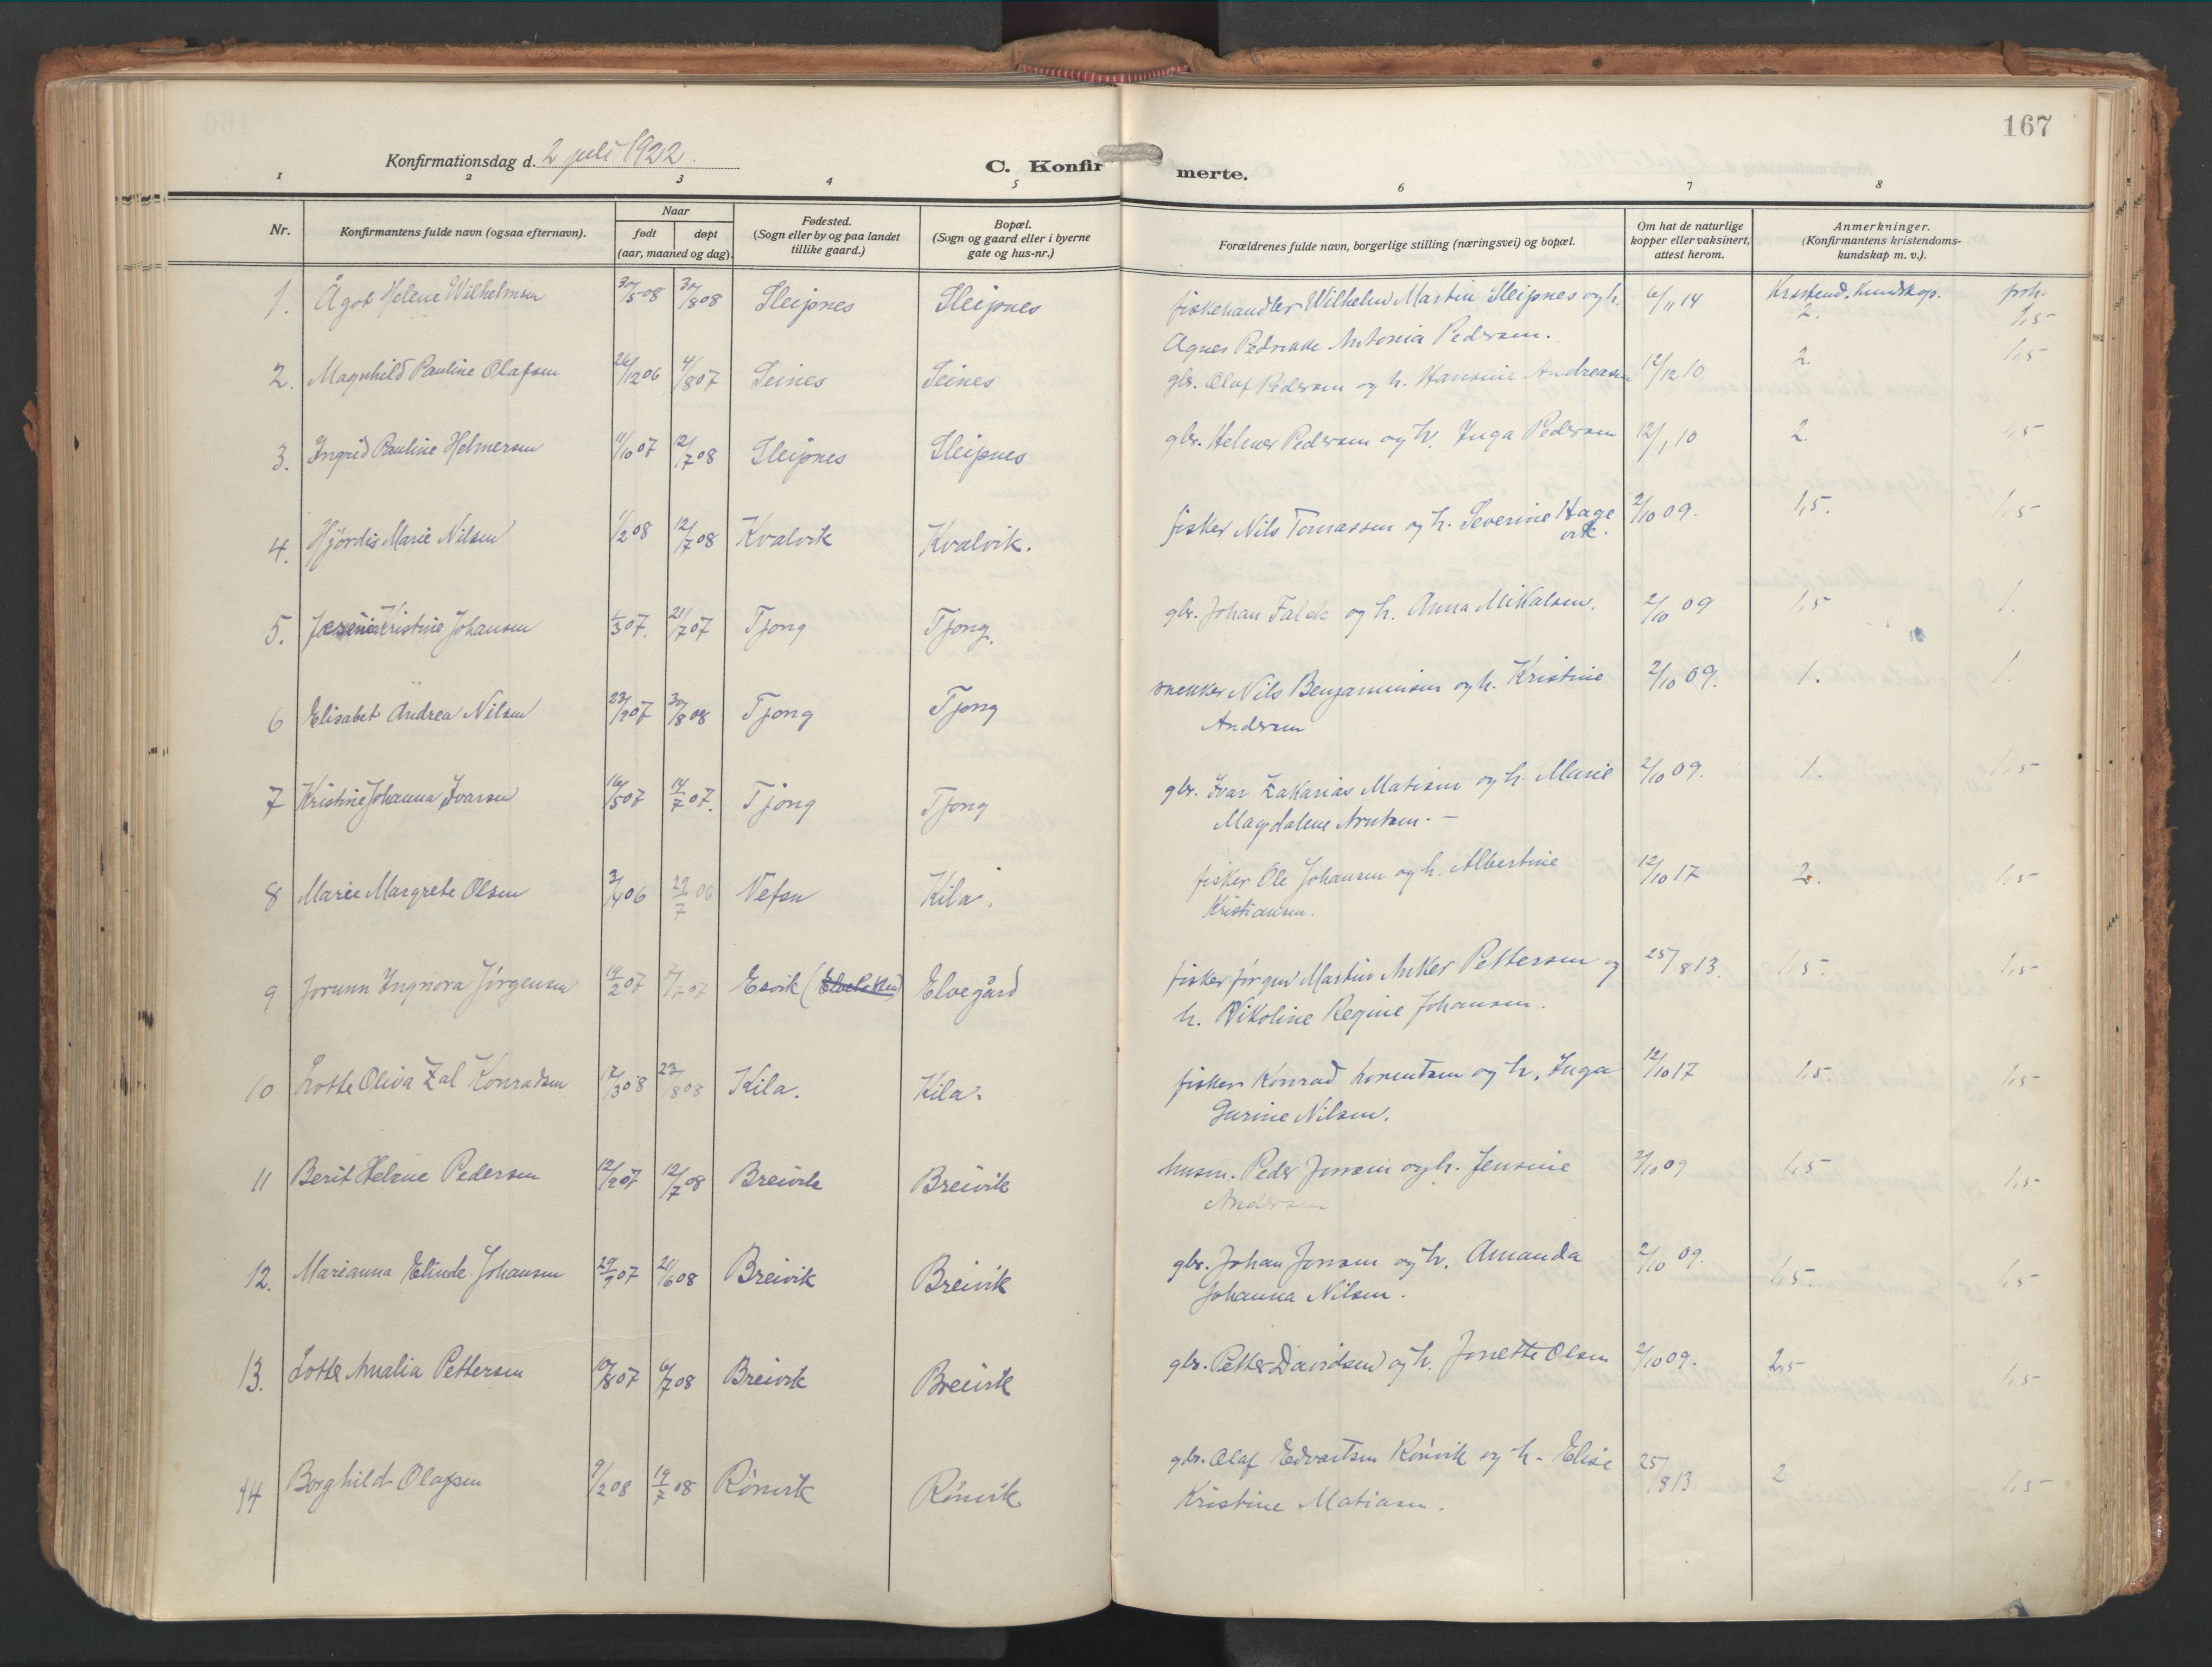 167
Konfirmationsdag d. 2 juli 1922.
C. Konfirmerte.
1 2 3 4 5 6 7 8
Nr. Konfirmantens fulde navn (ogsaa efternavn). Naar født døpt (aar, maaned og dag). Fødested. (Sogn eller by og paa landet tillike gaard.) Bopæl. (Sogn og gaard eller i byerne gate og hus-nr.) Forældrenes fulde navn, borgerlige stilling (næringsvei) og bopæl. Om hat de naturlige kopper eller vaksinert, attest herom. Anmerkninger. (Konfirmantens kristendoms-kundskap m. v.).
Kristend. Kundskap. forh.
1. Ågot Helene Wilhelmsen 30/5 08 30/8 08 Sleipnes Sleipnes fiskehandler Wilhelm Martin Sleipnes og h. 6/11 14 2. 1,5
Agnes Pedrikke Antonia Pedersen.
2. Magnhild Pauline Olafsen 26/12 06 4/8 07 Seines Seines gbr. Olaf Pedersen og h. Hansine Andreasen 12/12 10 2. 1,5
3. Ingrid Pauline Helmersen 11/10 07 12/7 08 Sleipnes Sleipnes gbr. Helmer Pedersen og h. Inga Pedersen 12/1 10 2. 1,5
4. Hjördis Marie Nilsen 1/2 08 12/7 08 Kvalvik Kvalvik. fisker Nils Tomassen og h. Severine Hage 2/10 09. 1,5. 1,5
vik.
5. Kristine Johansen 1/3 07. 21/7 07 Tjong Tjong. gbr. Johan Falck og h. Anna Mikalsen. 2/10 09 1,5 1.
6 Elisabet Andrea Nilsen 23/9 07 30/8 08 Tjong Tjong snekker Nils Benjaminsen og h. Kristine 2/10 09. 1. 1.
Andersen
7 Kristine Johanna Ivarsen 16/5 07 14/7 07. Tjong Tjong gbr. Ivar Zakarias Matisen og h. Marie 2/10 09. 1. 1,5
Magdalene Arntsen. -
8 Marie Margrete Olsen 3/4 06 29/7 06 Vefsn Kila. fisker Ole Johansen og h. Albertine 12/10 17 2. 1,5
Kristiansen.
9 Jorunn Ingnora Jörgensen 19/2 07 7/7 07 Esvik ( Elvegård fisker Jörgen Martin Anker Pettersen og 25/8 13. 1,5. 1,5
h. Nikoline Regine Johansen.
10 Lotte Oliva Zal Konradsen 17/3 08 23/8 08 Kila. Kila. fisker Konrad Lorentsen og h. Inga 12/10 17 1,5. 1,5
Gurine Nilsen.
11 Berit Helene Pedersen 12/9 07 12/7 08 Breivik Breivik husm. Peder Jonsen og h. Jensine 2/10 09 1,5 1,5
Andersen
12. Marianna Elinde Johansen 29/9 07 21/6 08 Breivik Breivik gbr. Johan Jonsen og h. Amanda 2/10 09. 1,5. 1,5
Johanna Nilsen.
13. Lotte Amalia Pettersen 10/8 07 6/7 08 Breivik Breivik gbr. Petter Davidsen og h. Jonette Olsen 2/10 09. 2,5 1,5
14 Borghild Olafsen 9/2 08 19/7 08 Rönvik Rönvik gbr. Olaf Edvartsen Rönvik og h. Elise 25/8 13 2 1,5
Kristine Matiasen.